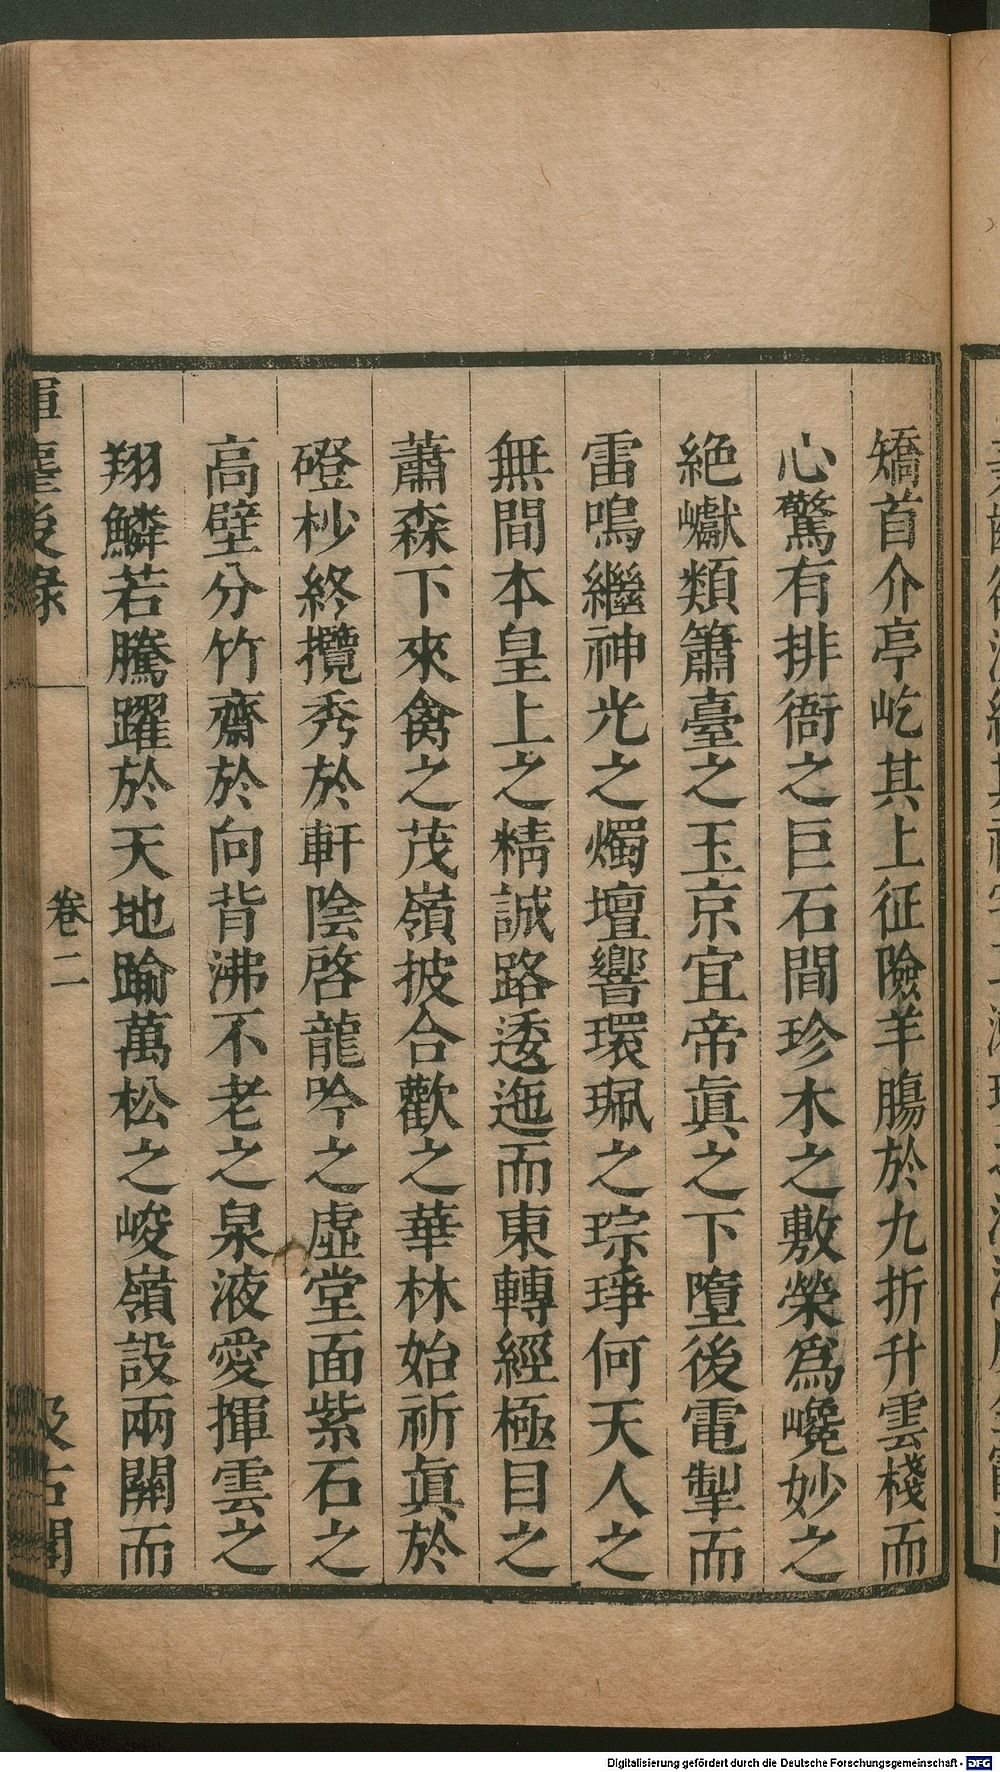 矯首介亭屹其上征險羊腸於九折升雲棧而
心驚有排衙之巨石間珍木之敷榮爲巉妙之
絶巘類簫臺之玉京宜帝眞之下墮後電掣而
雷鳴繼神光之燭壇響環珮之琮琤何天人之
無間本皇上之精誠路逶迤而東轉經極目之
蕭森下來禽之茂嶺披合歡之華林始祈眞於
磴杪終攬秀於軒陰啓龍吟之虛堂面紫石之
高壁分竹齋於向背沸不老之泉液愛揮雲之
翔鱗若騰躍於天地踰萬松之峻嶺設兩關而
揮麈後錄
卷二
汲古閣
Digitalisierung gefördert durch die Deutsche Forschungsgemeinschaft - DFG